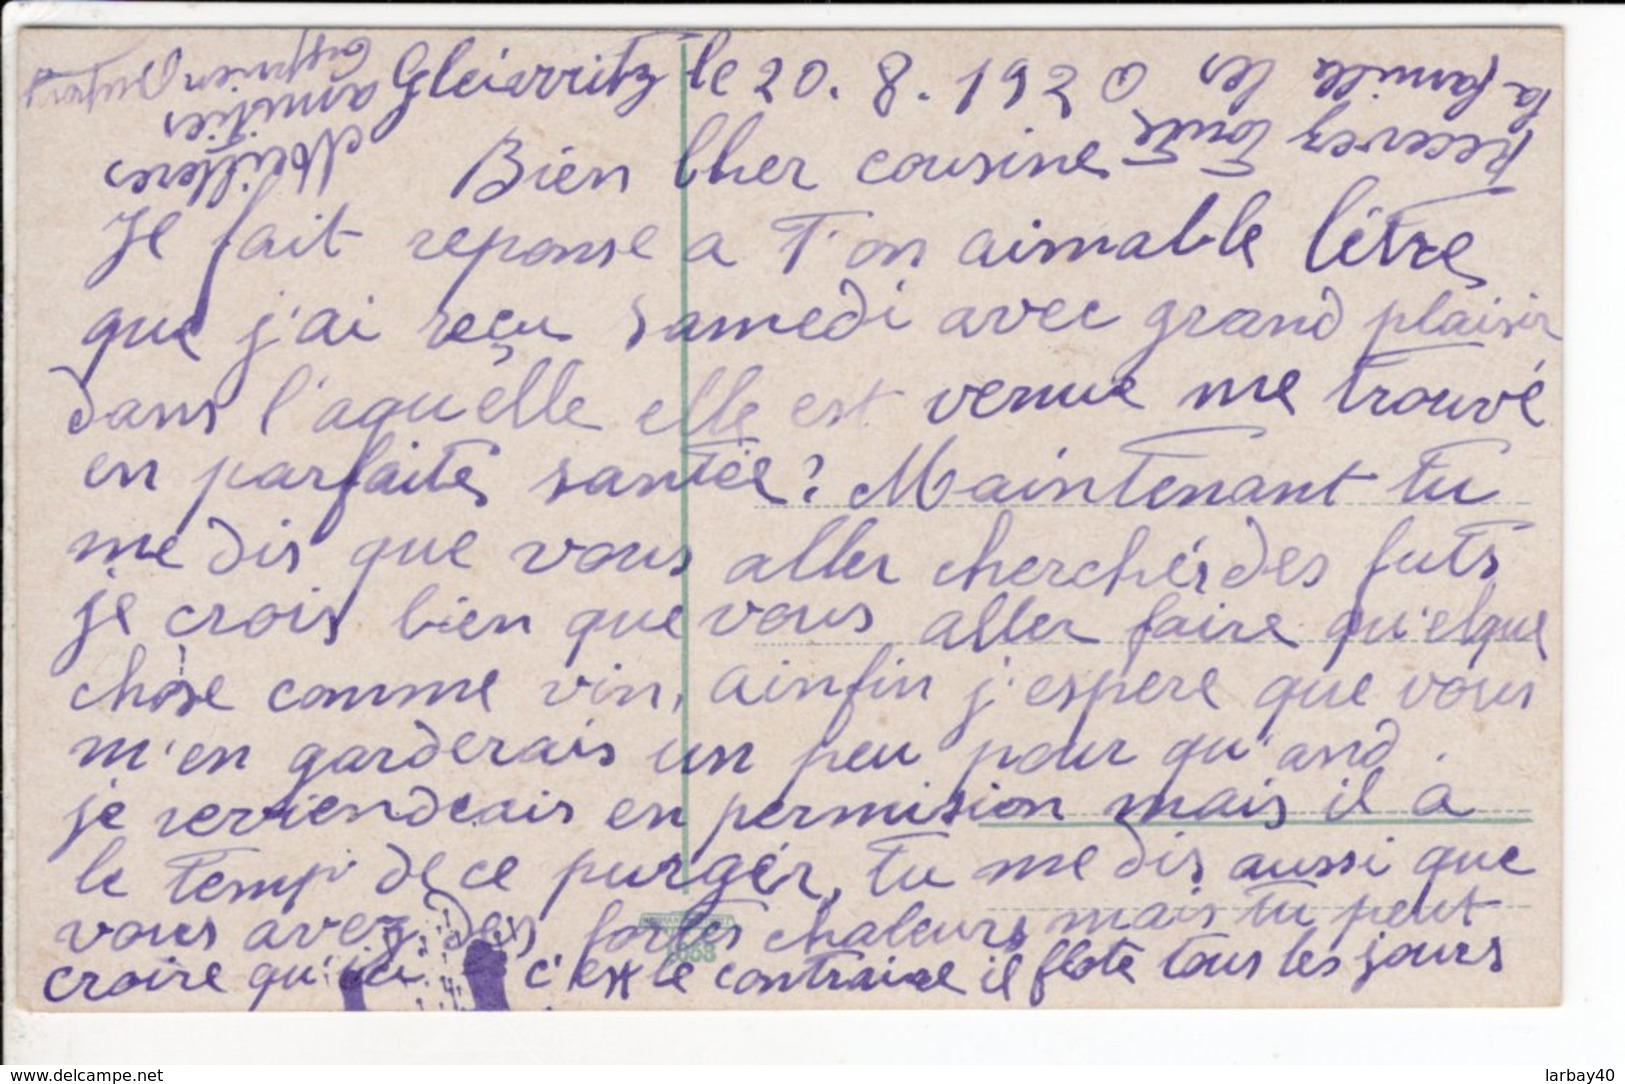 Gleiwitz le 20. 8. 1920
Bien Cher cousine
Je fait reponse a T'on aimable lètre
que j'ai reçu samedi avec grand plaisir
dans l'aquelle elle est venue me trouvé
en parfaite santée? Maintenant tu
me dis que vous aller cherchér des futs
je crois bien que vous aller faire qu'elque
chose comme vin, ainfin j'espere que vous
m'en garderais un peu pour qu'and.
je reviendrais en permision mais il a
le temp de ce purgér, tu me dis aussi que
vous avez des fortes chaleurs mais tu peut
croire qu'ici c'est le contraire il flote tous les jours
Recevez toute
la famille les
Meilleres
amitiés
www.delcampe.net
larbay40